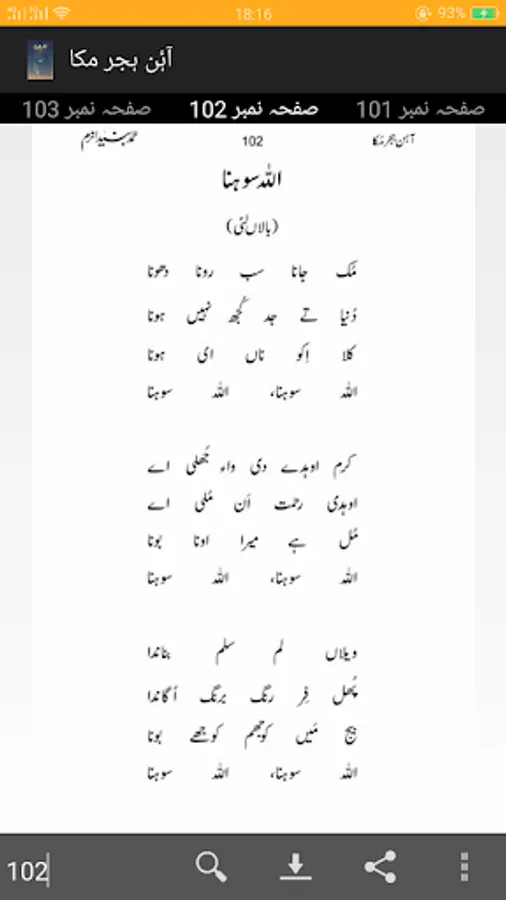 18:16
93%
آہن ہجر مکا
صفحہ نمبر 101
صفحہ نمبر 102
صفحہ نمبر 103
آہن ہجر مکا
102
اللہ سوہنا
(بالاں لئی)
مُک جانا سب رونا دھونا
دُنیا تے جد کُجھ نہیں ہونا
کلا اِکو ناں ای ہونا
اللہ سوہنا، اللہ سوہنا
کرم اوہدے دی واء جُھلی اے
اوہدی رحمت اَن مُلی اے
مُل ہے میرا اونا بونا
اللہ سوہنا، اللہ سوہنا
ویلاں لم سلم بناندا
پُھل فِر رنگ برنگ اُگاندا
بیج مَیں کوجھم کوجھے بونا
اللہ سوہنا، اللہ سوہنا
102